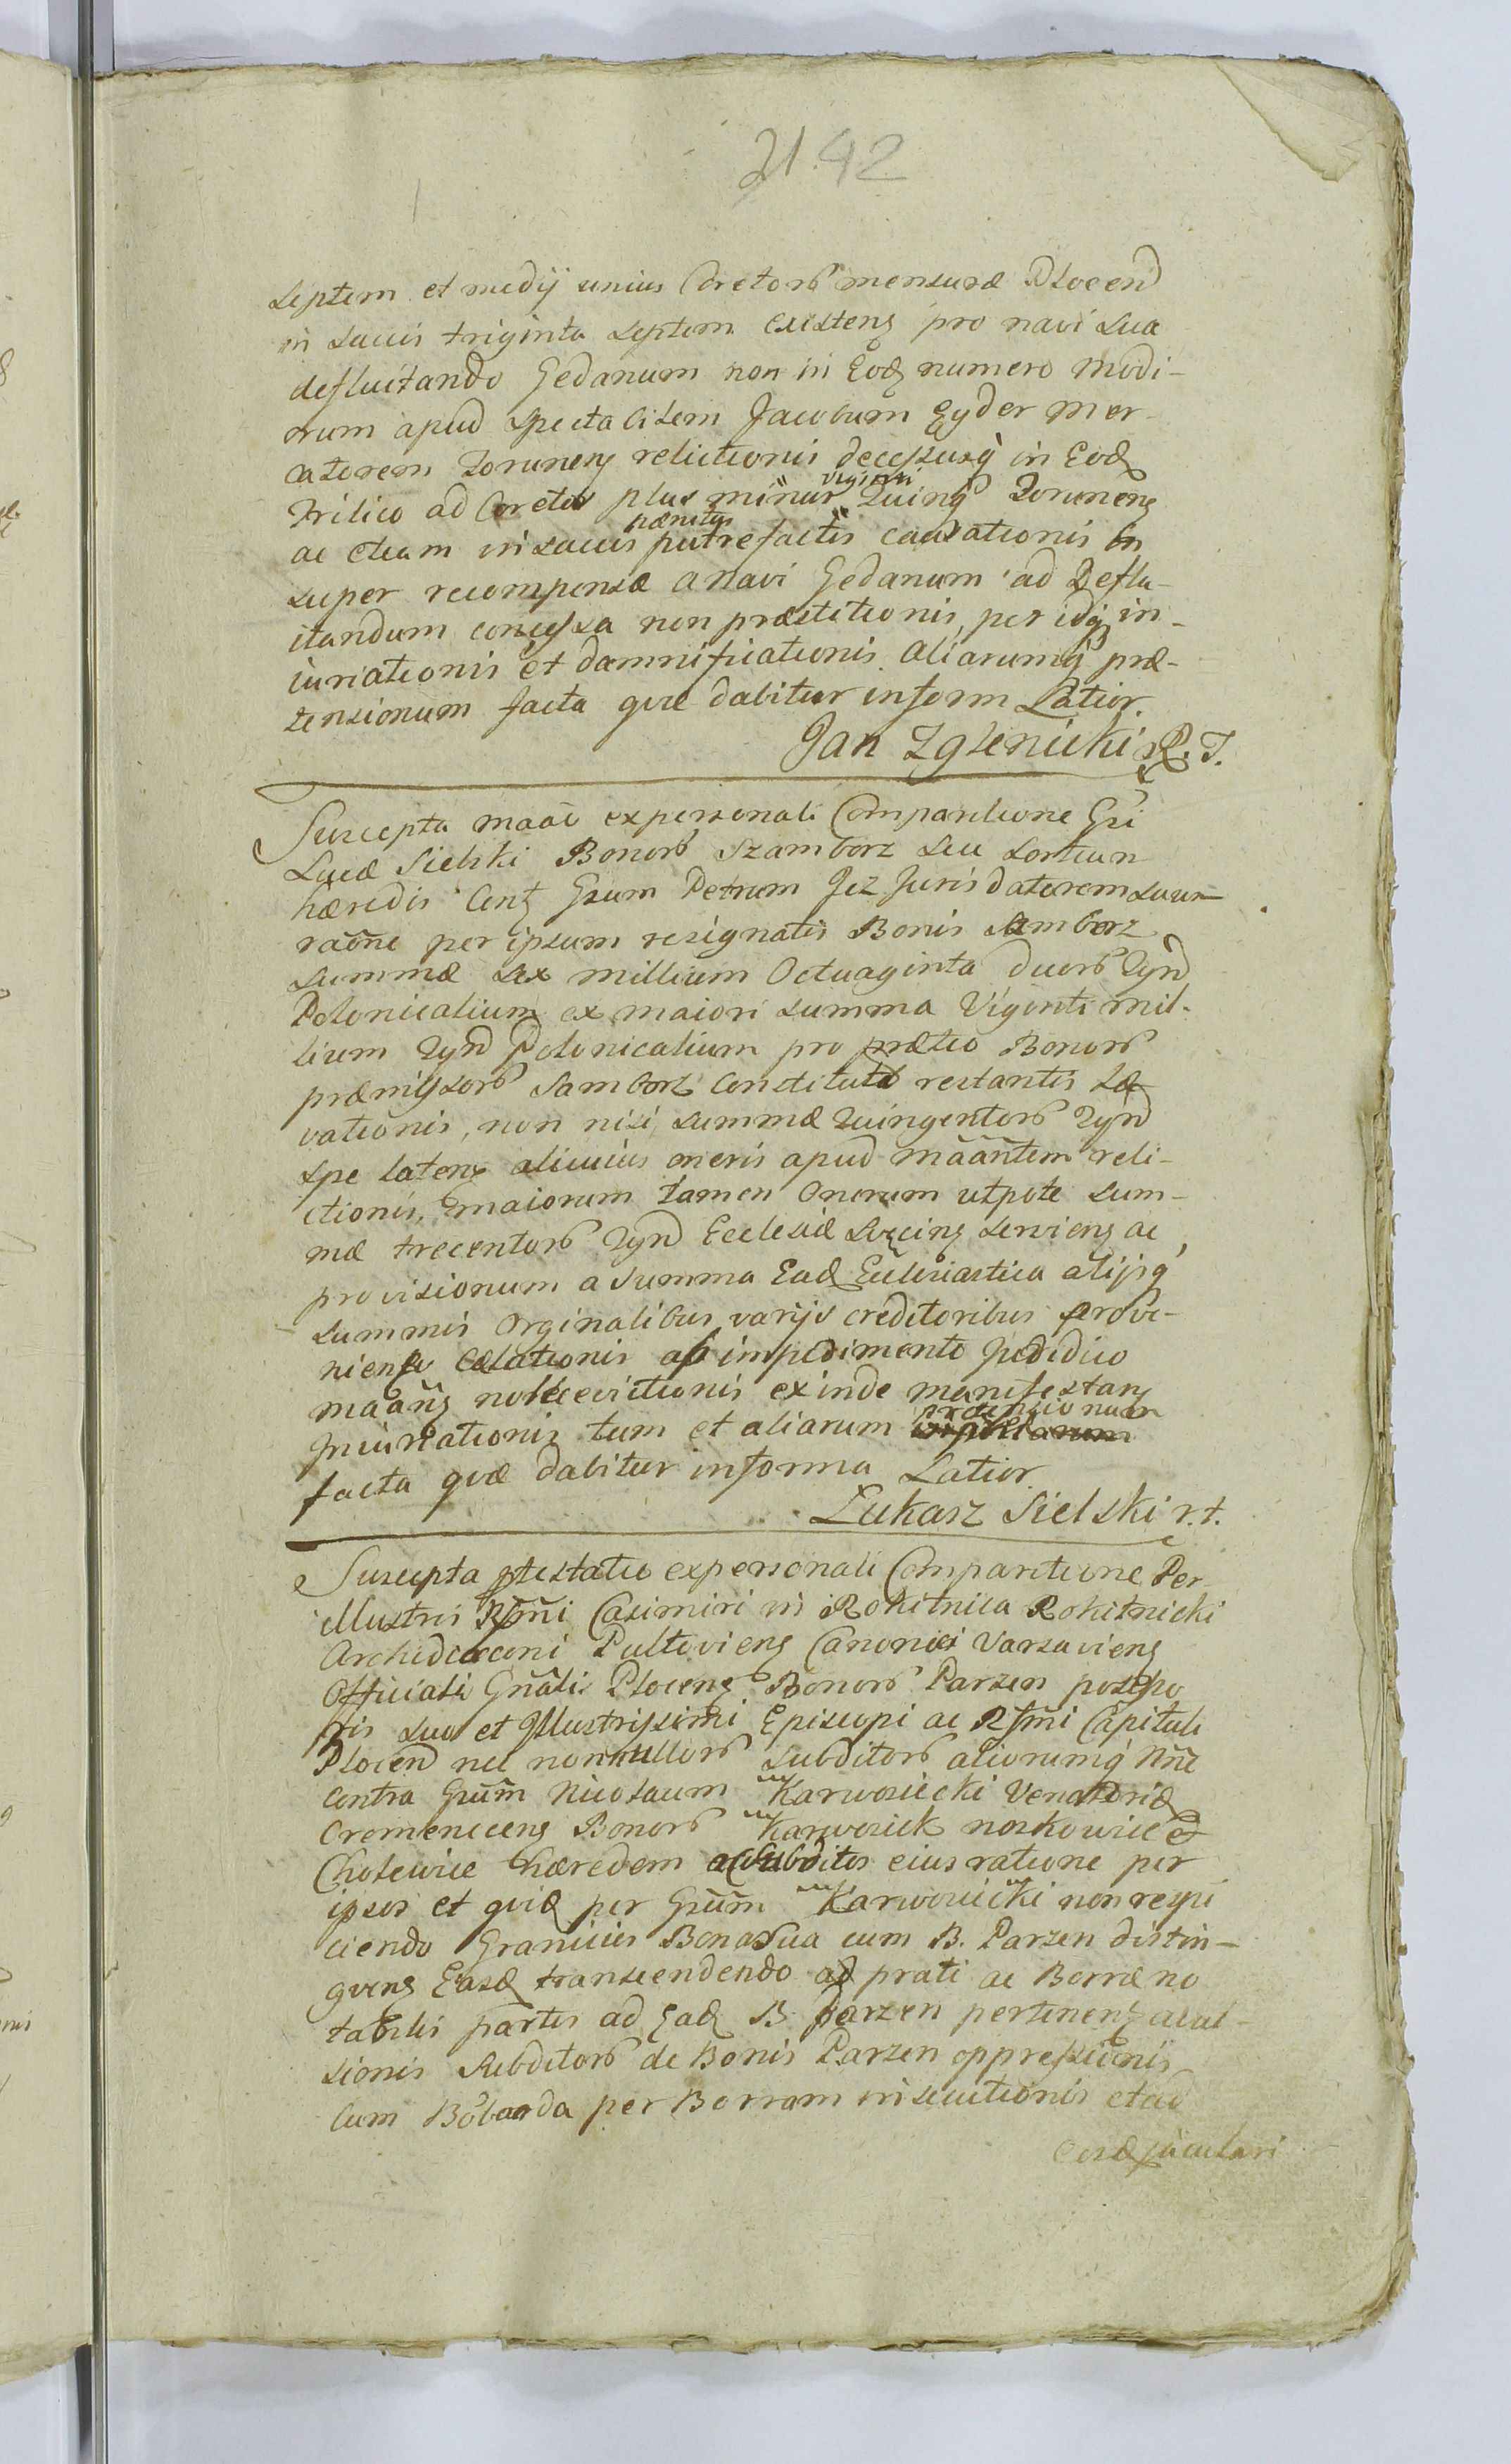 21. 42
septem et medij unius Coretorũ mensuræ Plocen
in saccis triginta septem existenѯ pro navi sua
defluitando Gedanum non in Eodѯ numero modi-
orum apud spectabilem Jacobum Eyder mer-
catorem Torunenѯ relictionis decessusq̀ in Eodѯ
Tritico ad Coretos plus minus viginti Quinq̀ Torunenѯ
ac etiam in saccis pænitus putrefactis causationis in
super recompensæ a navi Gedanum ad Deflu-
itandum concessa non præstitionis, per idq̀ in-
iuriationis et damnificationis aliarumq̀ præ-
tensionum facta quæ dabitur in form Latior.
Jan Zglenicki R. T.
Suscepta maãõ ex personali Comparitione Gsi
Lucæ Sielski Bonorũ Szamborz seu sortium
hæredis Conѯ Gsum Petrum Jez Juris datorem suum
raõne per ipsum resignatis Bonis Samborz
summæ sex millium Octuaginta duorũ Zyn
Polonicalium ex maiori summa Viginti mil-
lium Zyn Polonicalium pro prætio Bonorũ
præmissorũ Samborz Constituto restantis
vationis, non nisi summæ Quingentorũ Zyn
spe latenѯ alicuius oneris apud maãntem reli-
ctionis, maiorum tamen Onerum utpote sum-
mæ trecentorũ Zyn Ecclesiæ servienѯ ac
provisionum a summa Eadѯ Ecclesiastica alijsq̀
summis Orginalibus varijs creditoribus prove-
nienѯ Celationis ab impedimento Juridico
maãnѯ evictionis exinde manifestanѯ
Injuriationis tum et aliarum prætensionum
facta quæ dabitur in forma Latior.
Łukasz Sielski r. t.
Suscepta ptestatio ex personali Comparitione Per
illustris Rsm̃i Casimiri in Rokitnica Rokitnicki
Archidiaconi Pultovienѯ Canonici Varsavienѯ
Officialis Gñalis Plocenѯ Bonorũ Parzen possesso
ris suo et Illustrissimi Episcopi ac Rsm̃i Capituli
Plocen nec nonnullorũ subditorũ aliorumq̀ nñe
contra Gsum̃ Nicolaum Karwosiecki Venatoridѯ
Cremenecenѯ Bonorũ Karwosiek noskowice et
Cholewice hæredem ac subditos eius ratione per
ipsos et quidѯ per Gsum̃ Karwosiecki non respi
ciendo Granicies Bona sua cum B. Parzen distin-
guenѯ Easdѯ transcendendo ad prati ac Borræ no
tabilis partis ad Eadѯ B. Parzen pertinenѯ avul-
sionis subditorũ de Bonis Parzen oppressionis
cum per Borram insecutionis et ad